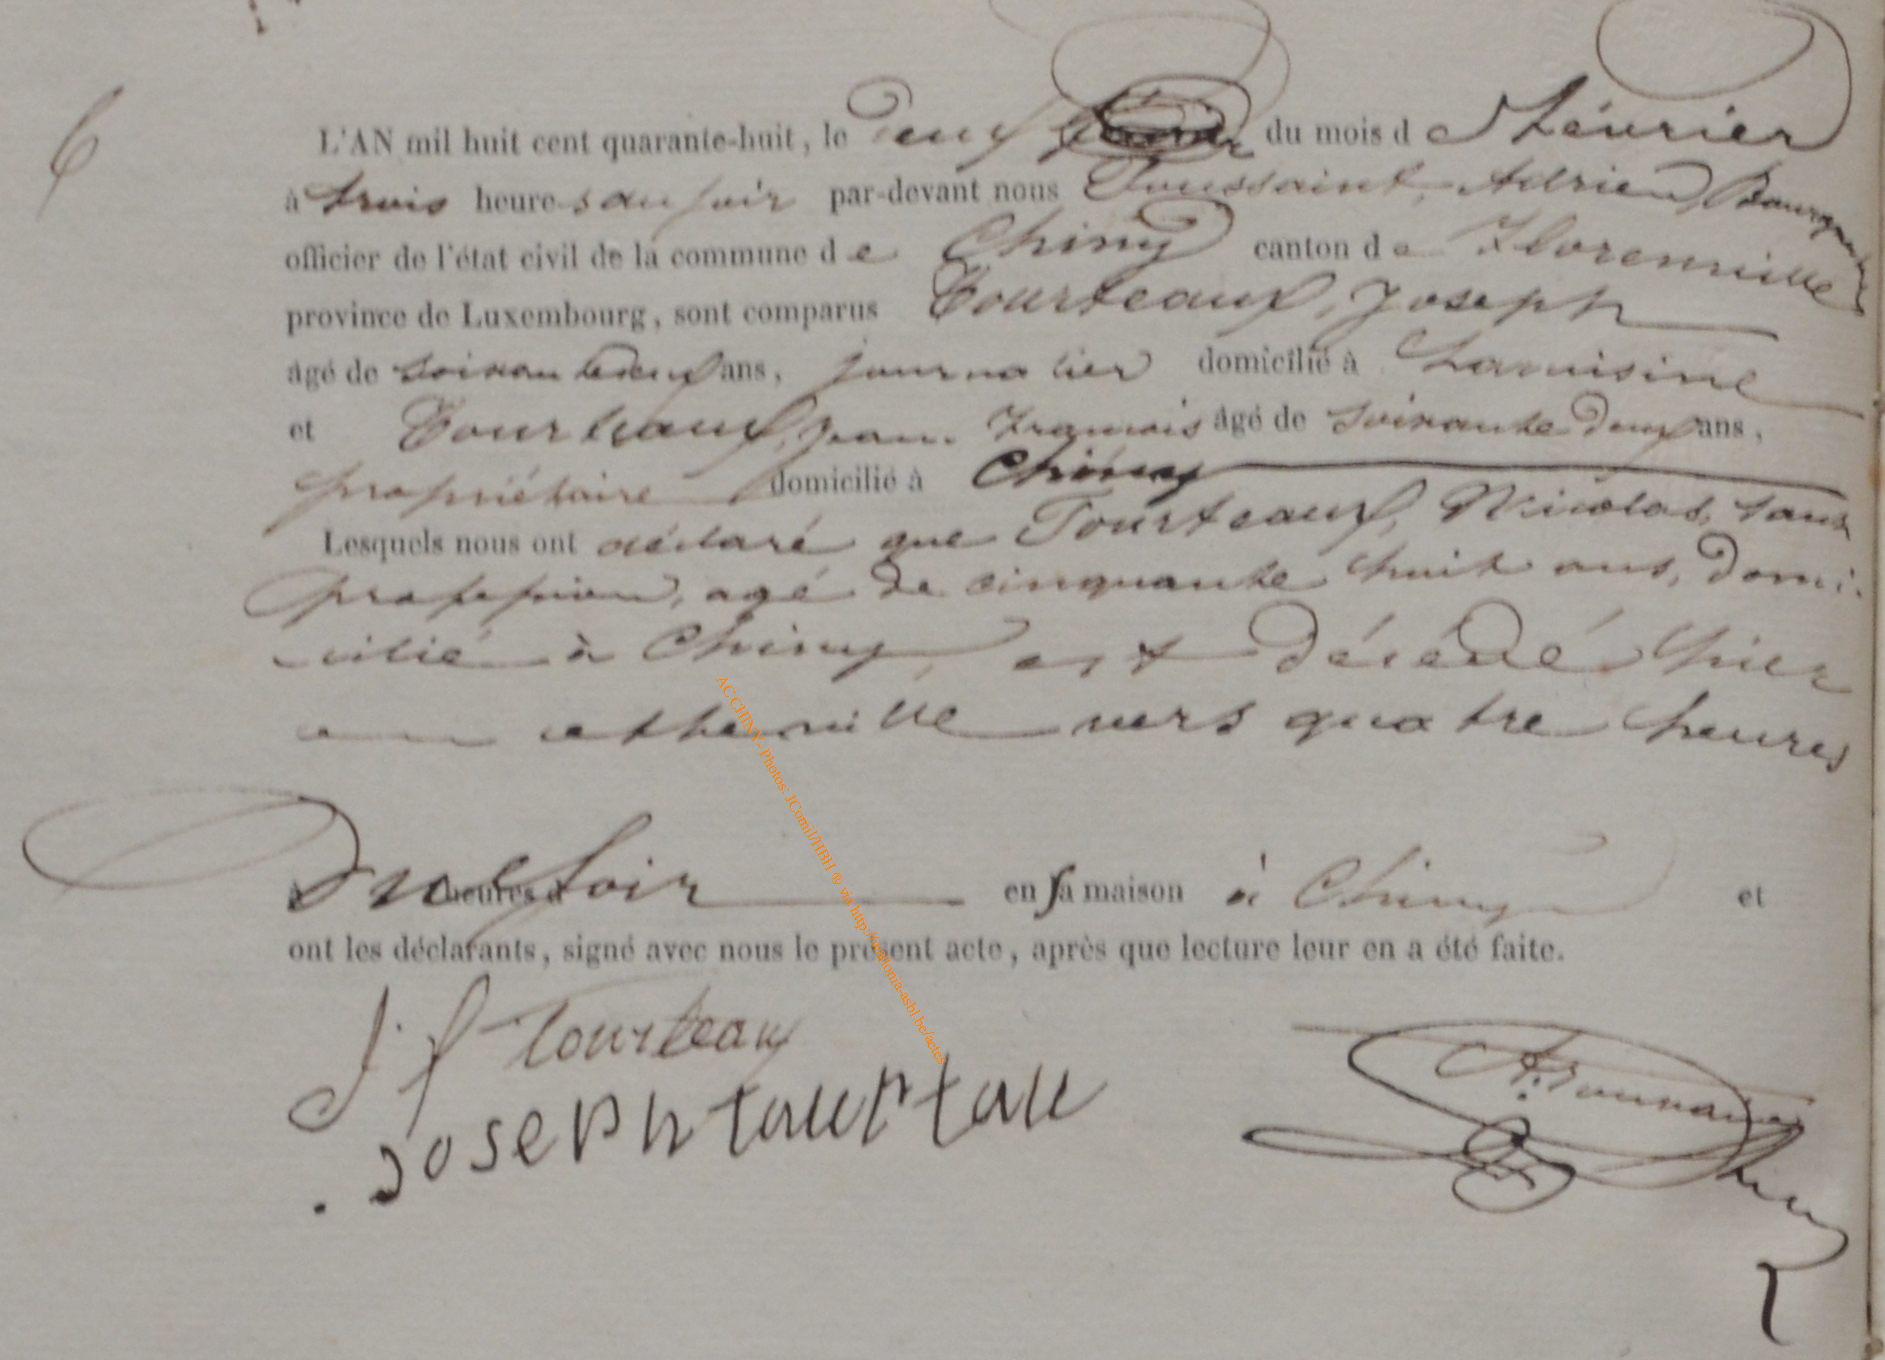 6
L'AN mil huit cent quarante-huit, le deux du mois d e Février
à trois heures du soir par-devant nous Toussaint, Adrien
officier de l'état civil de la commune d e Chiny canton d e Florenville
province de Luxembourg, sont comparus Tourteaux, Joseph
âgé de soixante deux ans, journalier domicilié à Lacuisine
et Tourteaux, Jean François âgé de soixante deux ans,
propriétaire domicilié à Chiny
Lesquels nous ont déclaré que Tourteaux, Nicolas, sans
profession, agé de cinquante huit ans, domi-
cilié à Chiny, est décédé hier
en cette ville vers quatre heures
à Du heures d soir en sa maison à Chiny et
ont les déclarants, signé avec nous le présent acte, après que lecture leur en a été faite.
J f Tourteaux
Joseph tourtau
AC CHINY - Photos JComil/HBH © via